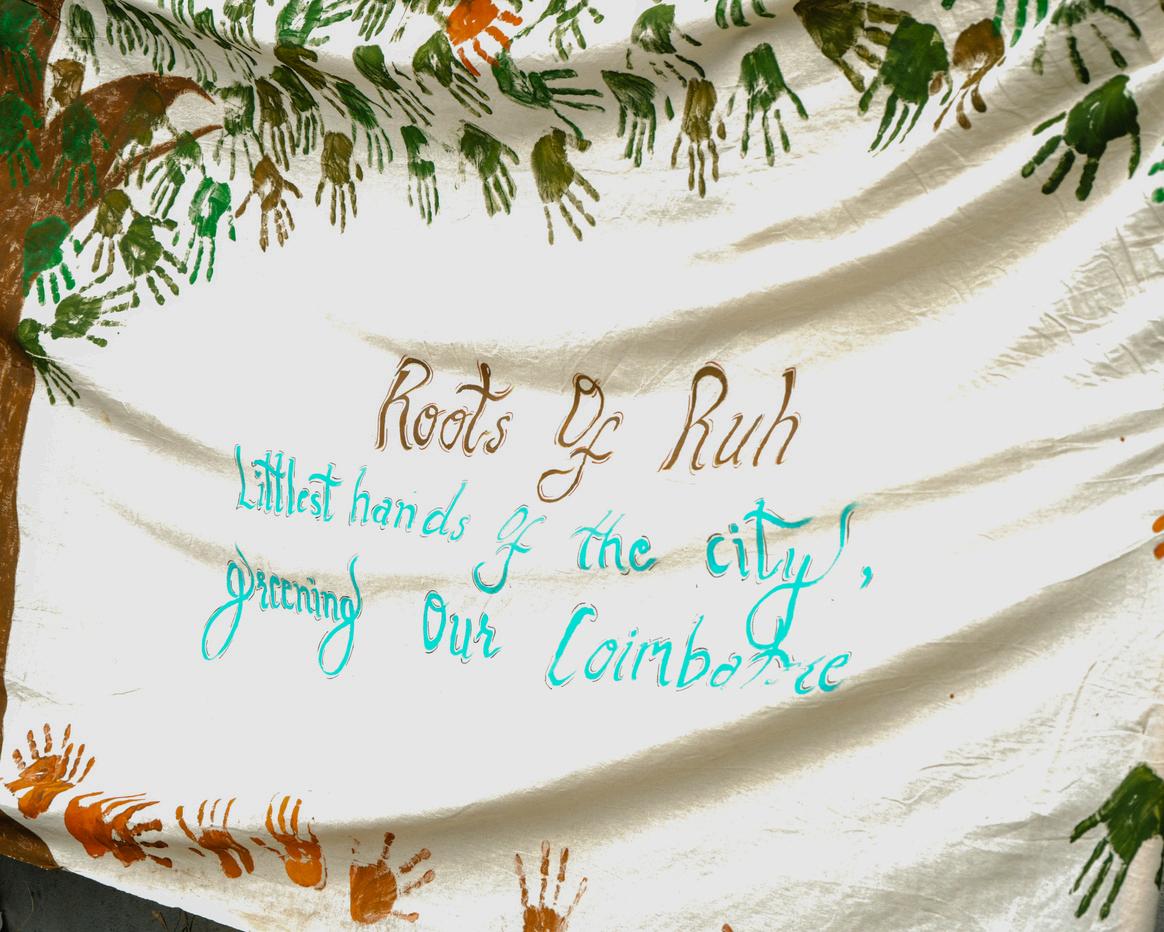 Roots Of Ruh
Littlest hands of the city,
greening Our Coimbatore